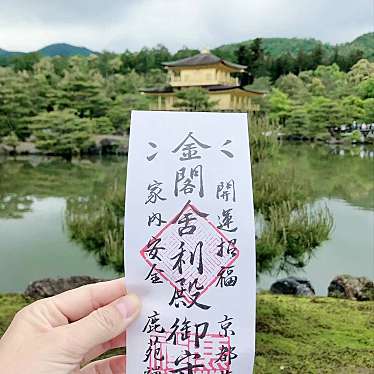 開運招福 京都
金閣舎利殿御守
家内安全 鹿苑